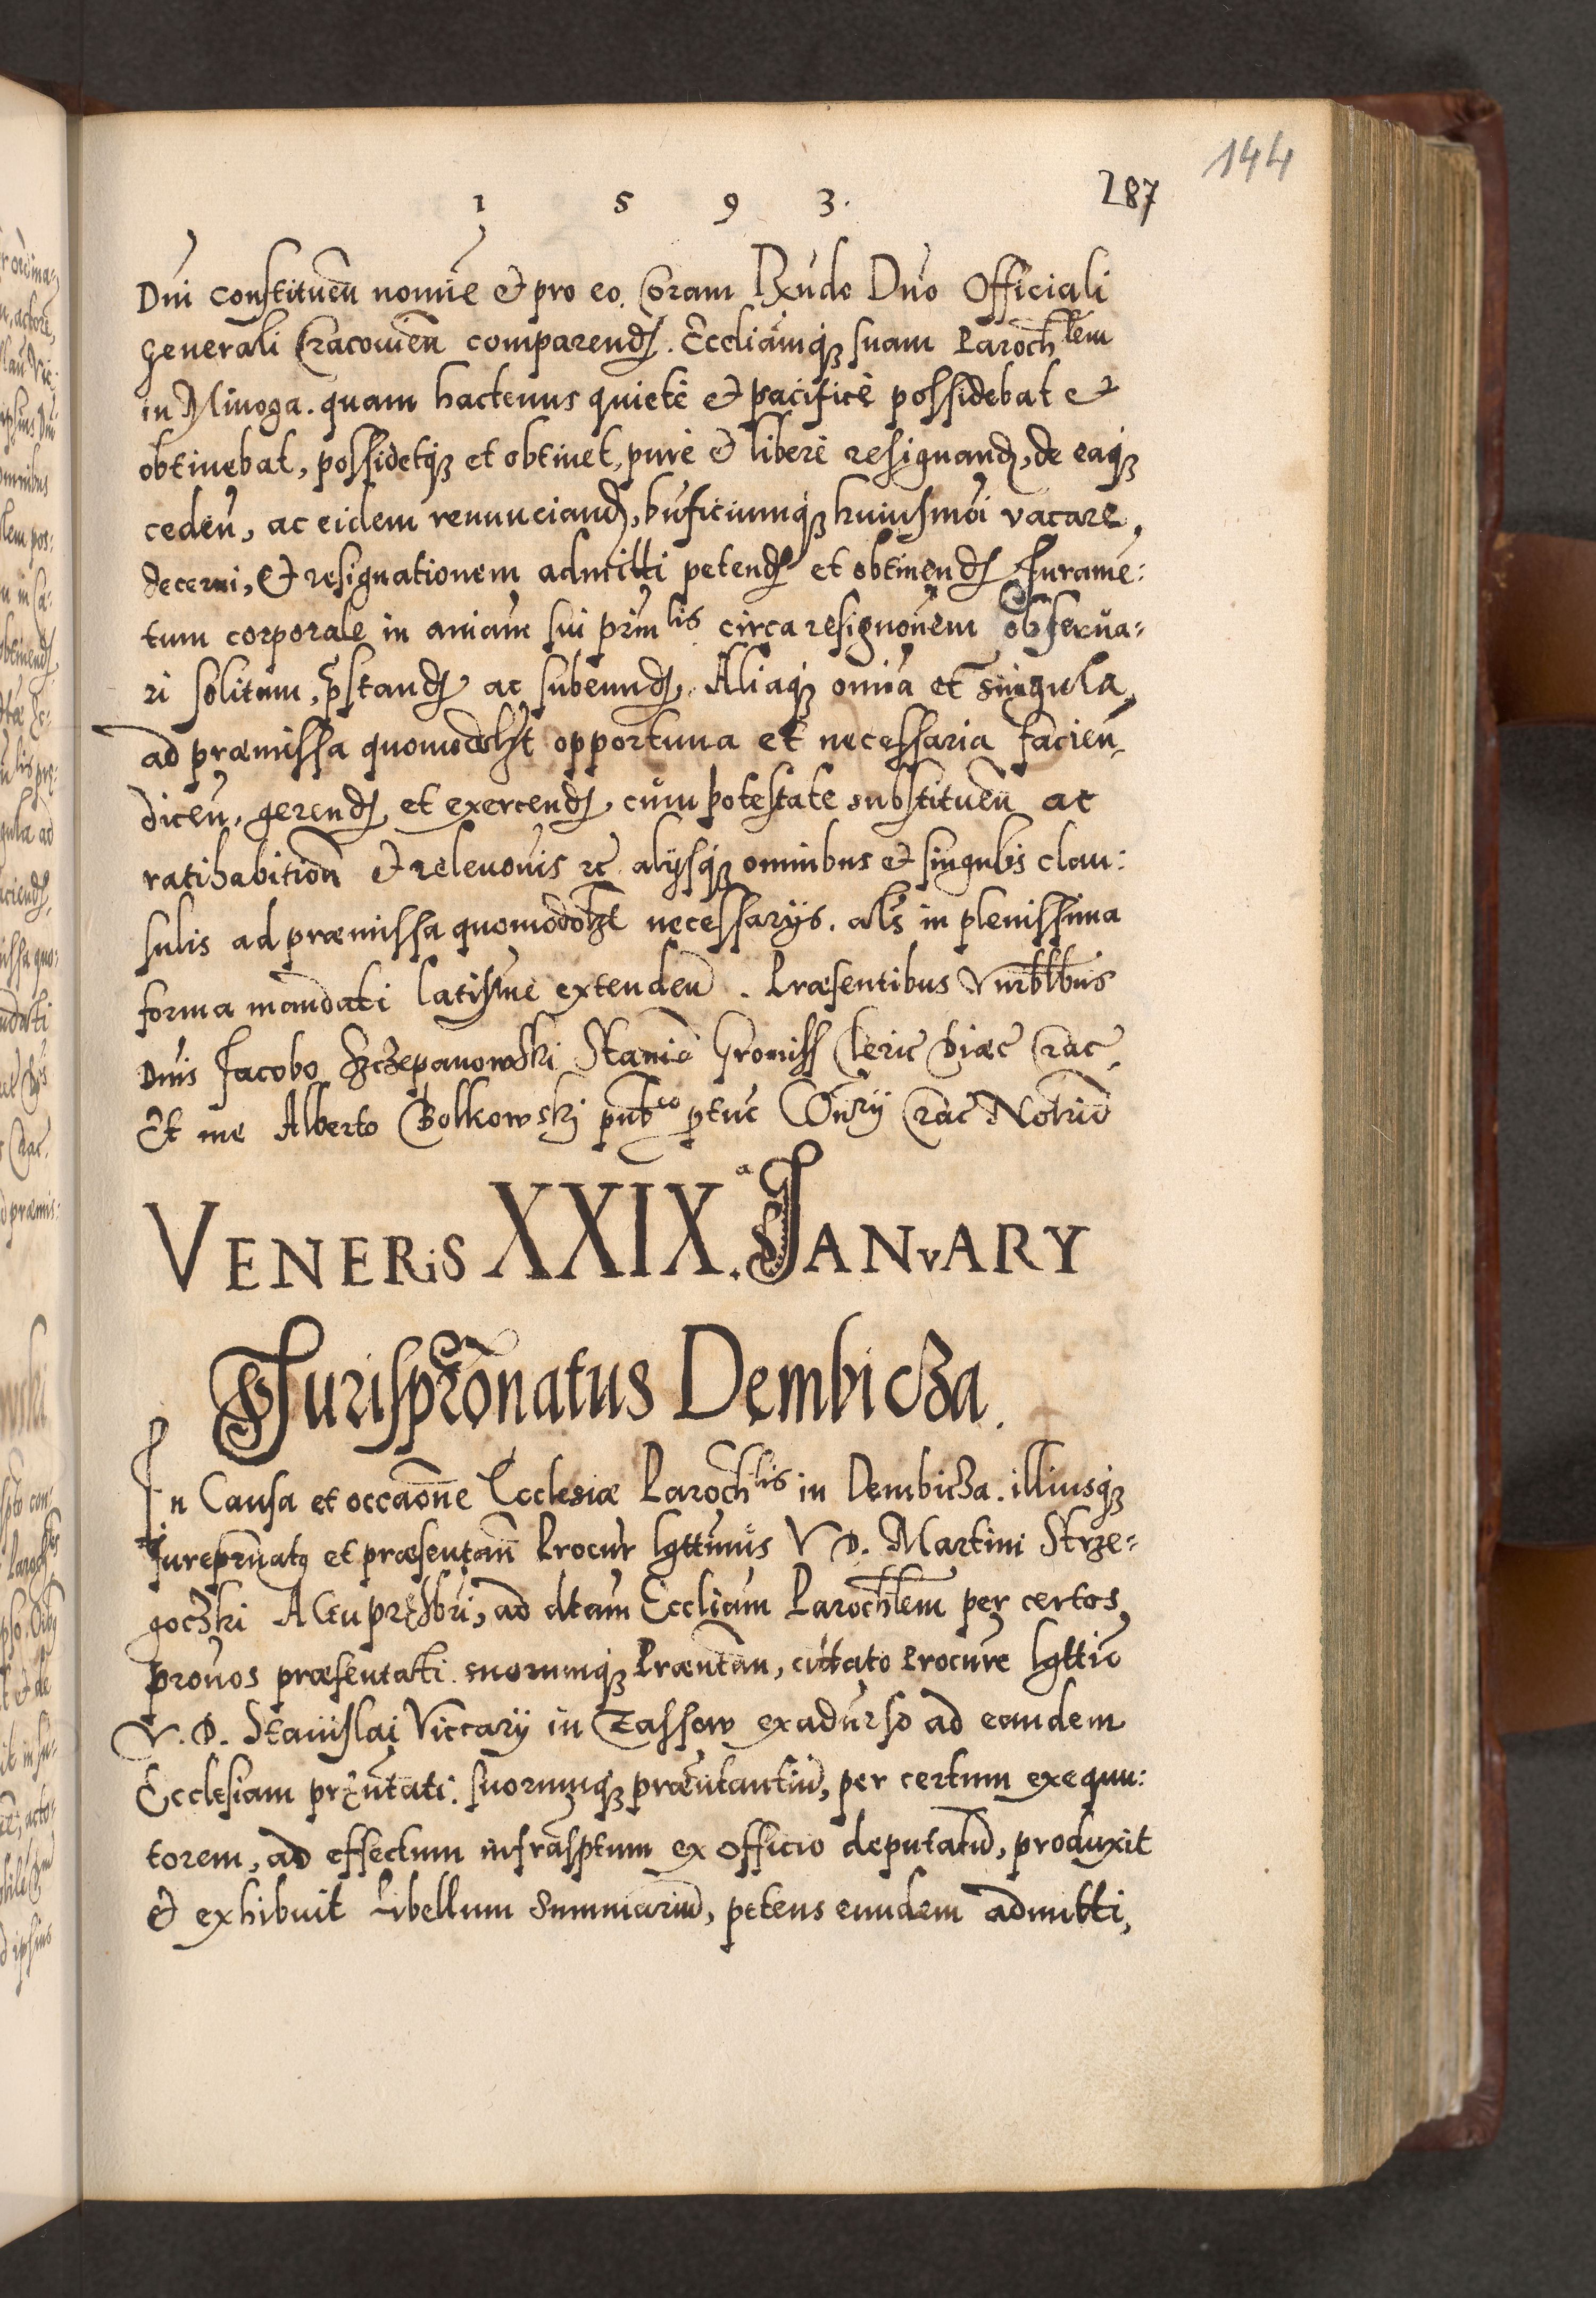 144
1 5 9 3. 287
Dni constituen nomie et pro eo. Coram Rndo Dno Officiali
Generali Cracovien comparend. Eccliamq suam Parochlem
in Minoga. quam hactenus quietè et pacificè possidebat et
obtinebat, possidetq et obtinet, purè et liberè resignand, de eaq
ceden, ac eidem renunciand, bnficiumq huiusmoi vacare,
decerni, et resignationem admitti petend et obtinend Jurame:
tum corporale in aniam sui prinlis circa resignonem observa-
ri solitum, pstand ac subeund. Aliaq omia et singula,
ad præmissa quomodolzt opportuna et necessaria facien,
dicen, gerend et exercend, cum potestate substituen ac
ratihabition et relevonis rc alijsq omnibus et singulis clau:
sulis ad præmissa quomodolzt necessarijs. als in plenissima
forma mandati latissme extenden. Præsentibus Vnrblbus
Dnis Jacobo Szczepanowski Stanio Gromiss Cleric diæc Crac.
Et me Alberto Bolkowski pubco ptuc Cosnrÿ Crac Notrio
VENERiS XXIX.a JANvARY
Jurisprônatus Dembicza.
In Causa et occaone Ecclesiæ Parochlis in Dembicza. illiusq
Jureprnatq et præsentann Procur lgttimus V D. Martini Strze-
goczki ALtu præsbri, ad dtam Eccliam Parochlem per certos
pronos præsentati suorumq Prænntan, cittato Procure lgttio
V. D. Stanislai Viccarij in Zassow ex adurso ad eandem
Ecclesiam præntati. suorumq præntantiu, per certum exequu:
torem, ad effectum infrasptum ex officio deputatu, produxit
et exhibuit Libellum Summariu, petens eundem admitti,